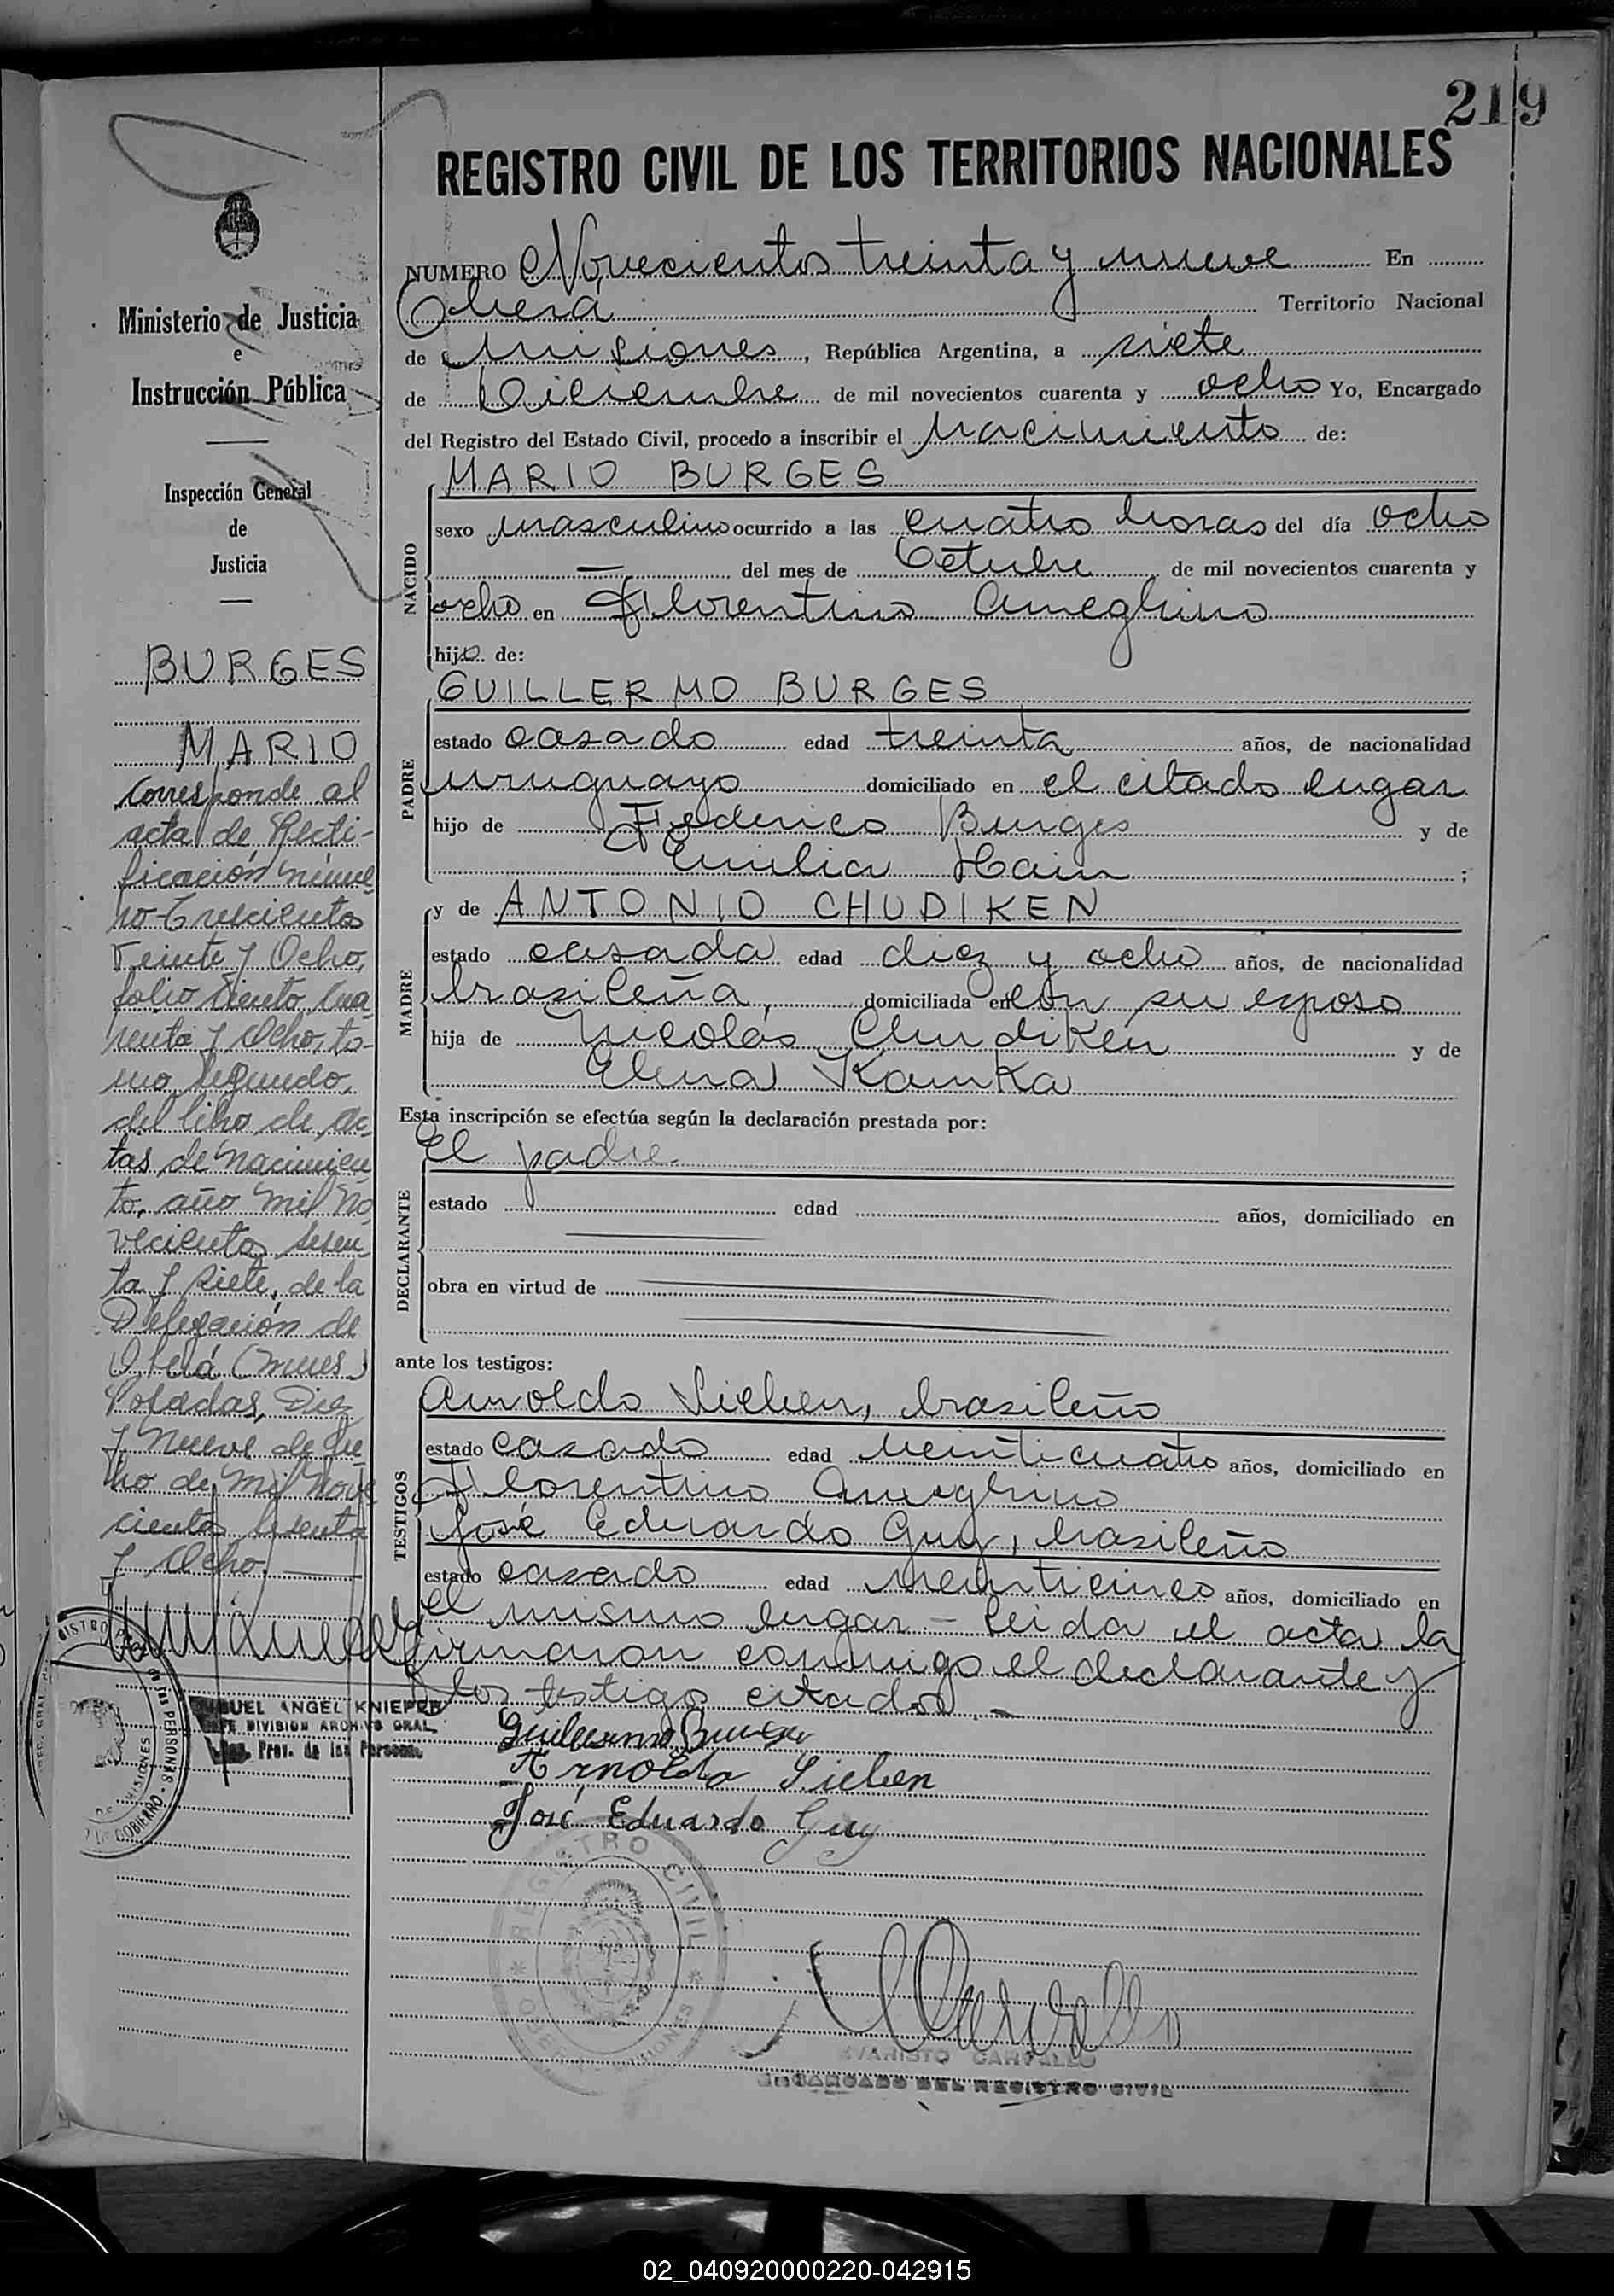 219
REGISTRO CIVIL DE LOS TERRITORIOS NACIONALES
Ministerio de Justicia
e
Instrucción Pública
Inspección General
de
Justicia
BURGES
MARIO
Corresponde al
acta de Recti-
ficación núme
ro Trescientos
Veinte y Ocho,
folio Ciento Cua
renta y Ocho, to-
mo Segundo,
del libro de ac
tas de nacimien
to, año mil no
vecientos sesen
ta y siete, de la
Delegación de
Oberá (mnes)
Posadas, Diez
y nueve de
de mil nove
cientos sesenta
y Ocho.
MIGUEL ANGEL KNIEPER
JEFE DIVISION ARCHIVO GRAL.
Prov. de las Personas
NUMERO Novecientos treinta y nueve En
Oberá Territorio Nacional
de Misiones, República Argentina, a siete
de Diciembre de mil novecientos cuarenta y ocho Yo, Encargado
del Registro del Estado Civil, procedo a inscribir el Nacimiento de:
NACIDO
MARIO BURGES
sexo masculino ocurrido a las cuatro horas del día ocho
— del mes de Octubre de mil novecientos cuarenta y
ocho en Florentino Ameghino
hijo de:
PADRE
GUILLERMO BURGES
estado casado edad treinta años, de nacionalidad
uruguayo domiciliado en el citado lugar
hijo de Federico Burges y de
Emilia Hain ;
MADRE
y de ANTONIO CHUDIKEN
estado casada edad diez y ocho años, de nacionalidad
brasileña, domiciliada en con su esposo
hija de Nicolás Chudiken y de
Elena Kamka
Esta inscripción se efectúa según la declaración prestada por:
DECLARANTE
El padre.
estado edad años, domiciliado en
obra en virtud de
ante los testigos:
TESTIGOS
Arnoldo Sieben, brasileño
estado casado edad veinticuatro años, domiciliado en
Florentino Ameghino
José Eduardo Guy, brasileño
estado casado edad veinticinco años, domiciliado en
el mismo lugar — Leida el acta la
firmaron conmigo el declarante y
los testigos citados. —
Guillermo Burges
Arnoldo Sieben
José Eduardo Guy
REGISTRO CIVIL
MISIONES
EVARISTO CARVALLO
ENCARGADO DEL REGISTRO CIVIL
02_040920000220-042915